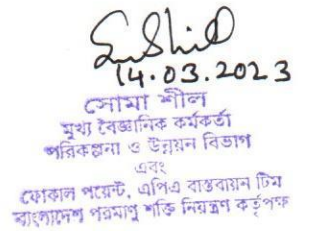 14.03.2023
সোমা শীল
মুখ্য বৈজ্ঞানিক কর্মকর্তা
পরিকল্পনা ও উন্নয়ন বিভাগ
এবং
ফোকাল পয়েন্ট, এপিএ বাস্তবায়ন টিম
বাংলাদেশ পরমাণু শক্তি নিয়ন্ত্রণ কর্তৃপক্ষ